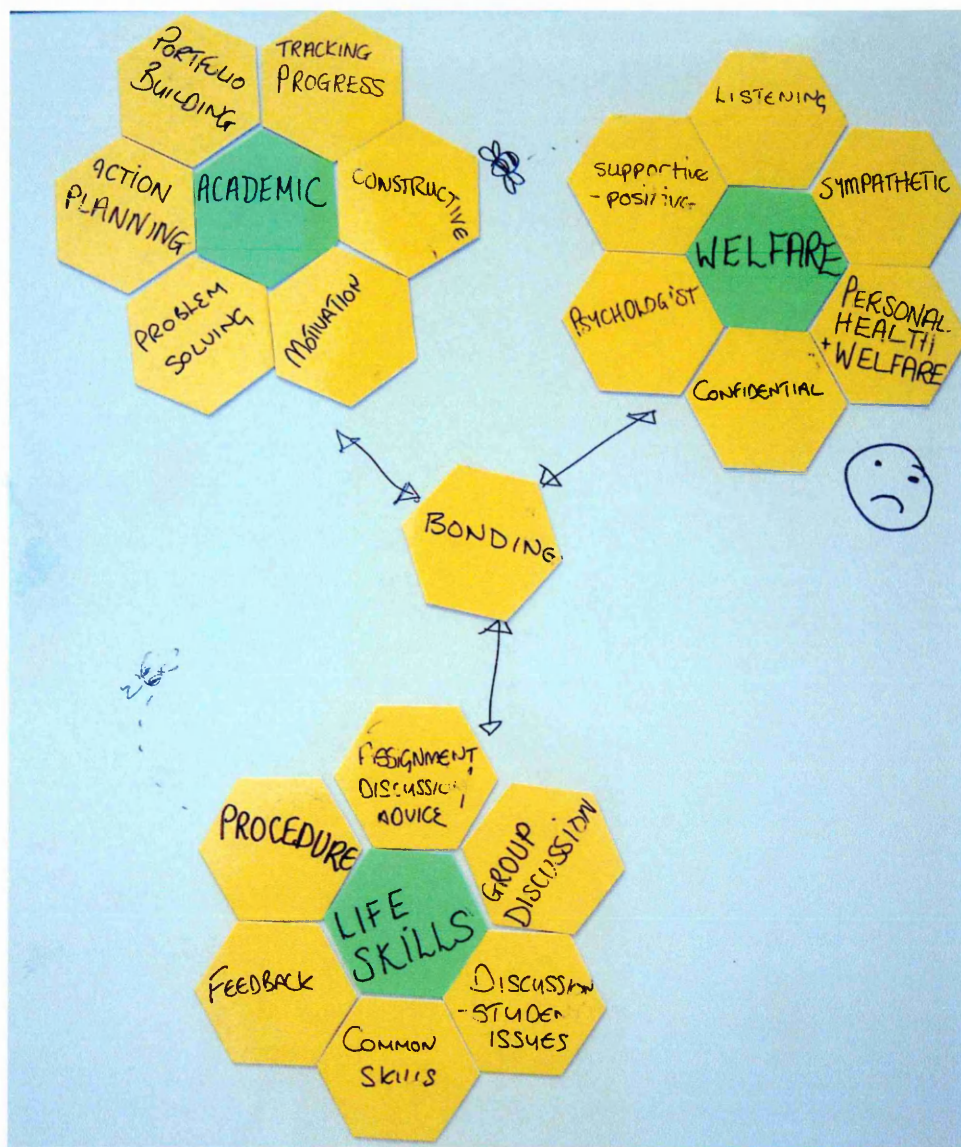 PORTFOLIO
BUILDING
TRACKING
PROGRESS
ACTION
PLANNING
ACADEMIC
CONSTRUCTIVE
PROBLEM
SOLVING
MOTIVATION
LISTENING
supportive
- positive
SYMPATHETIC
WELFARE
PSYCHOLOGIST
PERSONAL
HEALTH
+ WELFARE
CONFIDENTIAL
BONDING
ASSIGNMENT
DISCUSSION
ADVICE
PROCEDURE
GROUP
DISCUSSION
LIFE
SKILLS
FEEDBACK
DISCUSSION
- STUDENT
ISSUES
COMMON
SKILLS